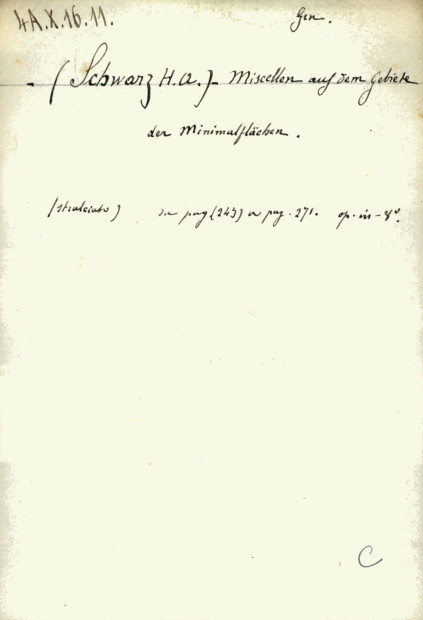 4A.X.16.11.
Gen.
- (Schwarz H.A.) - Miscellen auf dem Gebiete
der Minimalflächen.
(stralciato) da pag (243) a pag. 271. op. in-8°.
C